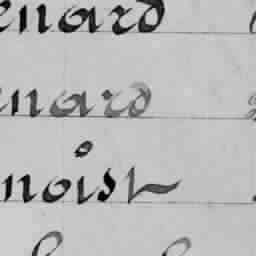 enard
enard
noist